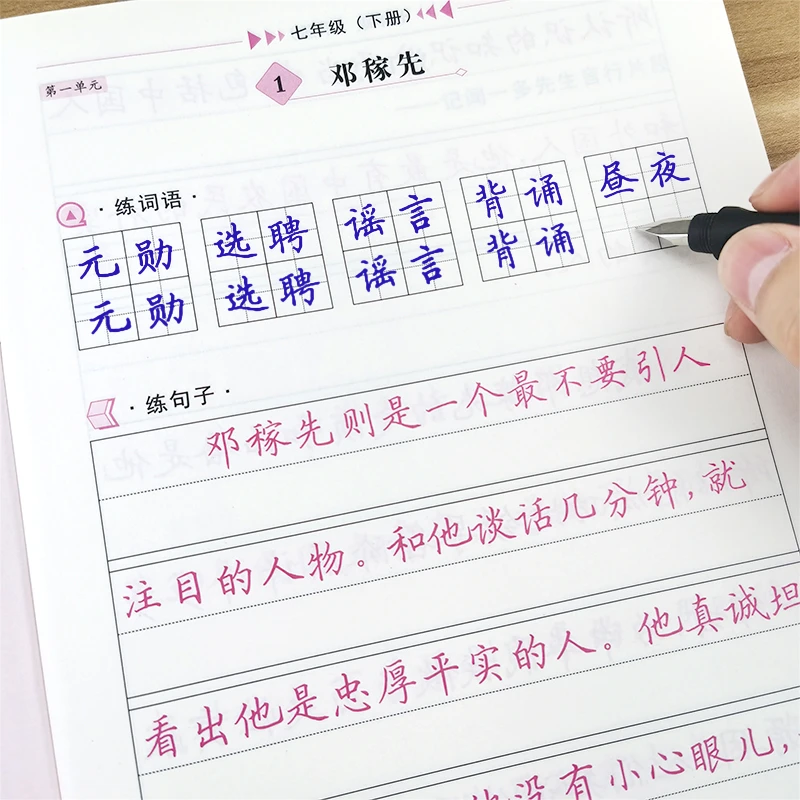 七年级（下册）
第一单元
1 邓稼先
·练词语·
元勋 选聘 谣言 背诵 昼夜
元勋 选聘 谣言 背诵
·练句子·
邓稼先则是一个最不要引人
注目的人物。和他谈话几分钟，就
看出他是忠厚平实的人。他真诚坦
他没有小心眼儿，